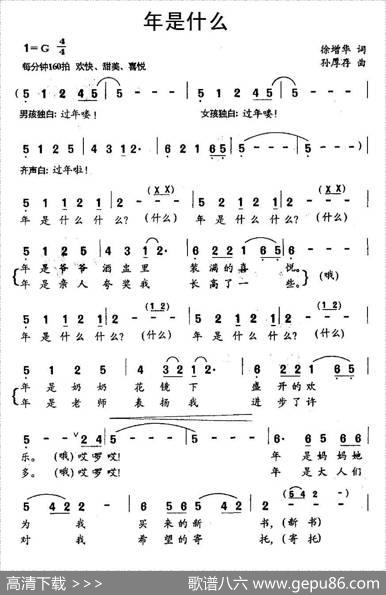 年是什么
1=G 4/4
徐增华 词
每分钟160拍 欢快、甜美、喜悦
孙厚存 曲
(5 1 2 4 5 5 - - - 5 1 2 4 5 5 - - -
男孩独白: 过年喽! 女孩独白: 过年喽!
5 1 2 5 4 3 1 2· 6 2 2 1 6 5 5 - - -)
齐声白: 过年啦!
5 1 1 2 1 2 1 2 - (X X) 5 1 1 2 1 2 1 2 - - -
年 是 什么 什么? (什么) 年 是 什么 什么? (什么)
5 1 2 5 4 3 1 2· 6 2 2 1 6 5 5 - - -
年 是 爷爷 酒盅里 装 满的 喜 悦。 (哦)
年 是 亲人 夸奖我 长 高了 一 些。
5 1 1 2 1 2 1 2 - (1 2) 5 1 1 2 1 2 1 2 - - -
年 是 什么 什么? (什么) 年 是 什么 什么? (什么)
年 是 奶奶 花 镜 下 盛 开的 欢
年 是 老师 表 扬 我 进 步了 许
5 - - 2 4 5 - - - 5 - - - 1 2· 6 5 6
乐。 (哦) 哎啰哎! 年 是 妈妈她
多。 (哦) 哎啰哎! 年 是 大人们
为 我 买 来的 新 书, (新 书)
对 我 希 望的 寄 托, (寄 托)
高清下载 >>>
歌谱八六 www.gepu86.com